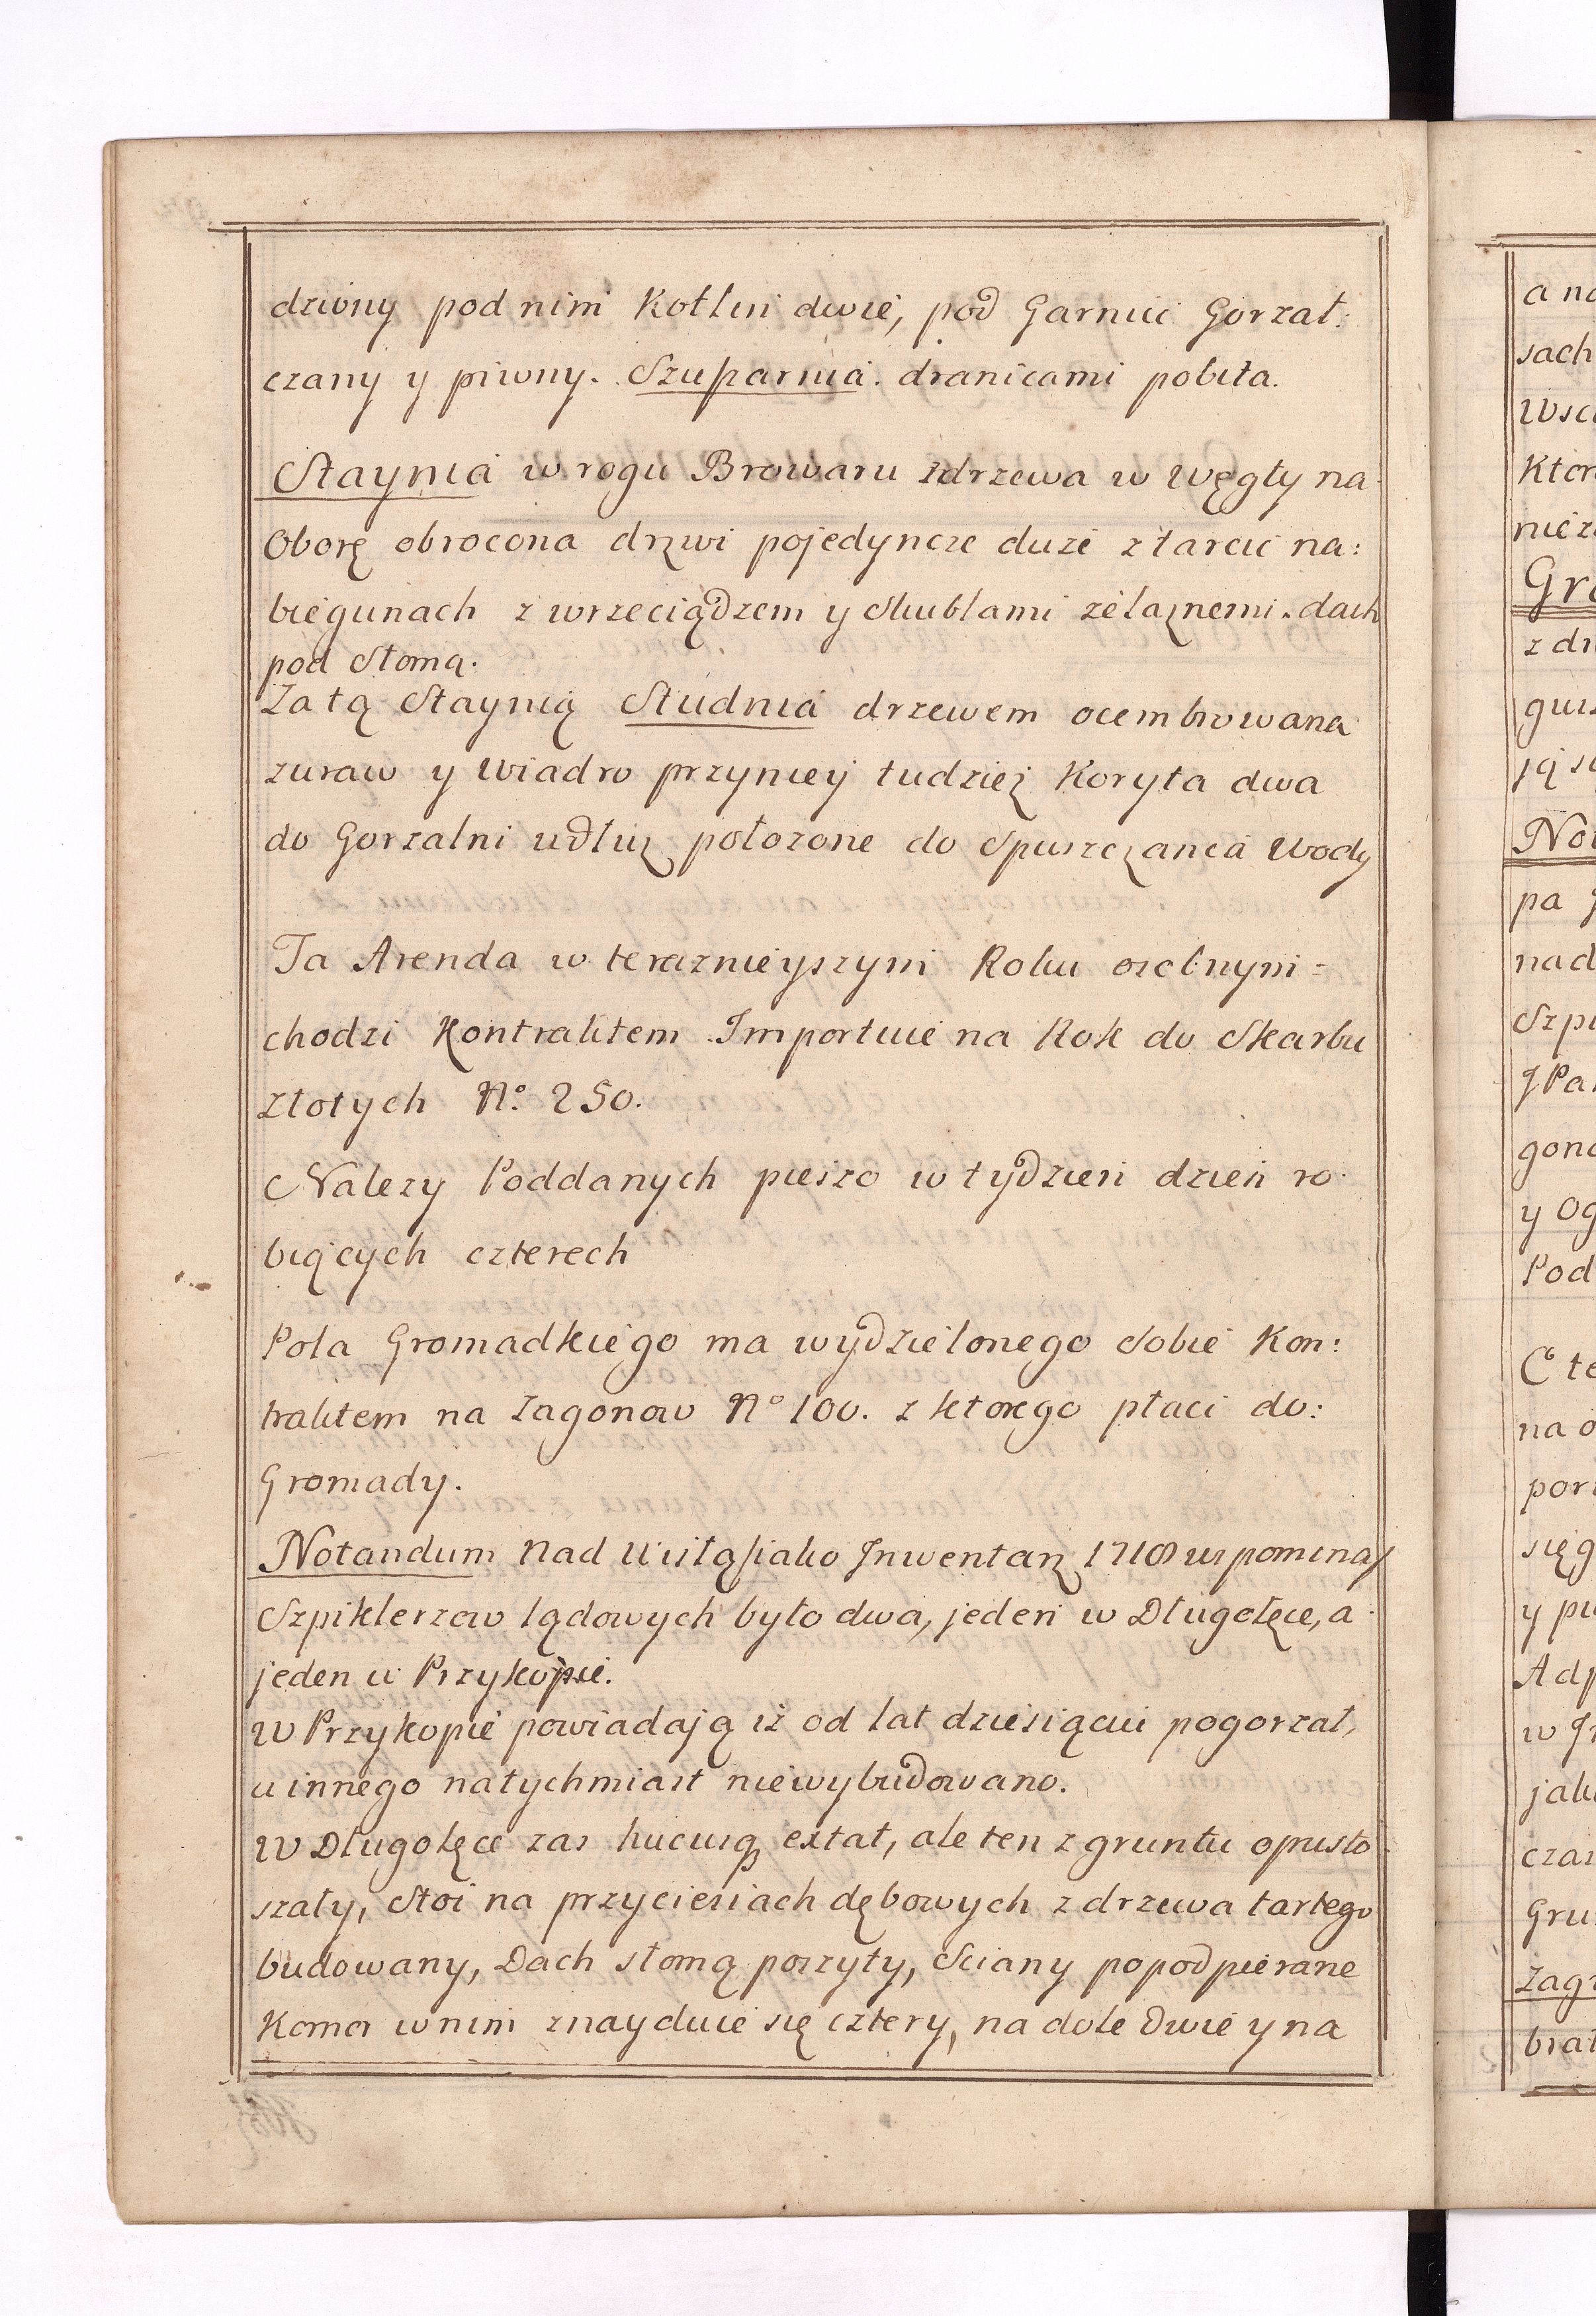 dziony pod nim Kotlin dwie, pod Garniec Gorzał:
czany y piwny. Szuparnia. dranicami pobita.
Staynia w rogu Browaru zdrzewa w Węgły na
Oborę obrocona drzwi pojedyncze duże z tarcic na:
biegunach z wrzeciądzem y Skublami zelaznemi. dach
pod Słomą.
Za tą Staynią Studnia drzewem ocembrowana
zuraw y Wiadro przyniey tudziez Koryta dwa
do Gorzalni udłuz połozone do Spuszczania Wody
Ta Arenda w terazнieyszym Roku osobnym =
chodzi Kontraktem Importuie na Rok do Skarbu
złotych No. 250.
Nalezy Poddanych pieszo w tydzień dzień ro
biących czterech
Pola Gromadkiego ma wydzielonego Sobie Kon:
traktem na Zagonow No 100. z ktorego płaci do:
Gromady.
Notandum Nad Wisłą jako Inwentarz 1710 wspomina
Szpiklerzow lądowych było dwa, jeden w Długołęce, a
jeden w Przykopie.
W Przykopie powiadają iż od lat dziesiąciu pogorzał,
a innego natychmiast niewybudowano.
W Długołęce zas hucusq extat, ale ten z gruntu opusto
szały, Stoi na przyciesiach dębowych z drzewa tartego
budowany, Dach słomą poszyty, Sciany popodpierane
Komor w nim znayduie się cztery, na dole Dwie y na
a na
sach
Wsc
Ktor
nieza
Gro
z dr
guis
ją si
Not
pa
nad
Szpi
JPa
gono
y Og
Pod
C te
na o
port
się g
y pu
Adp
w In
jaku
czas
Grun
Zagr
brat